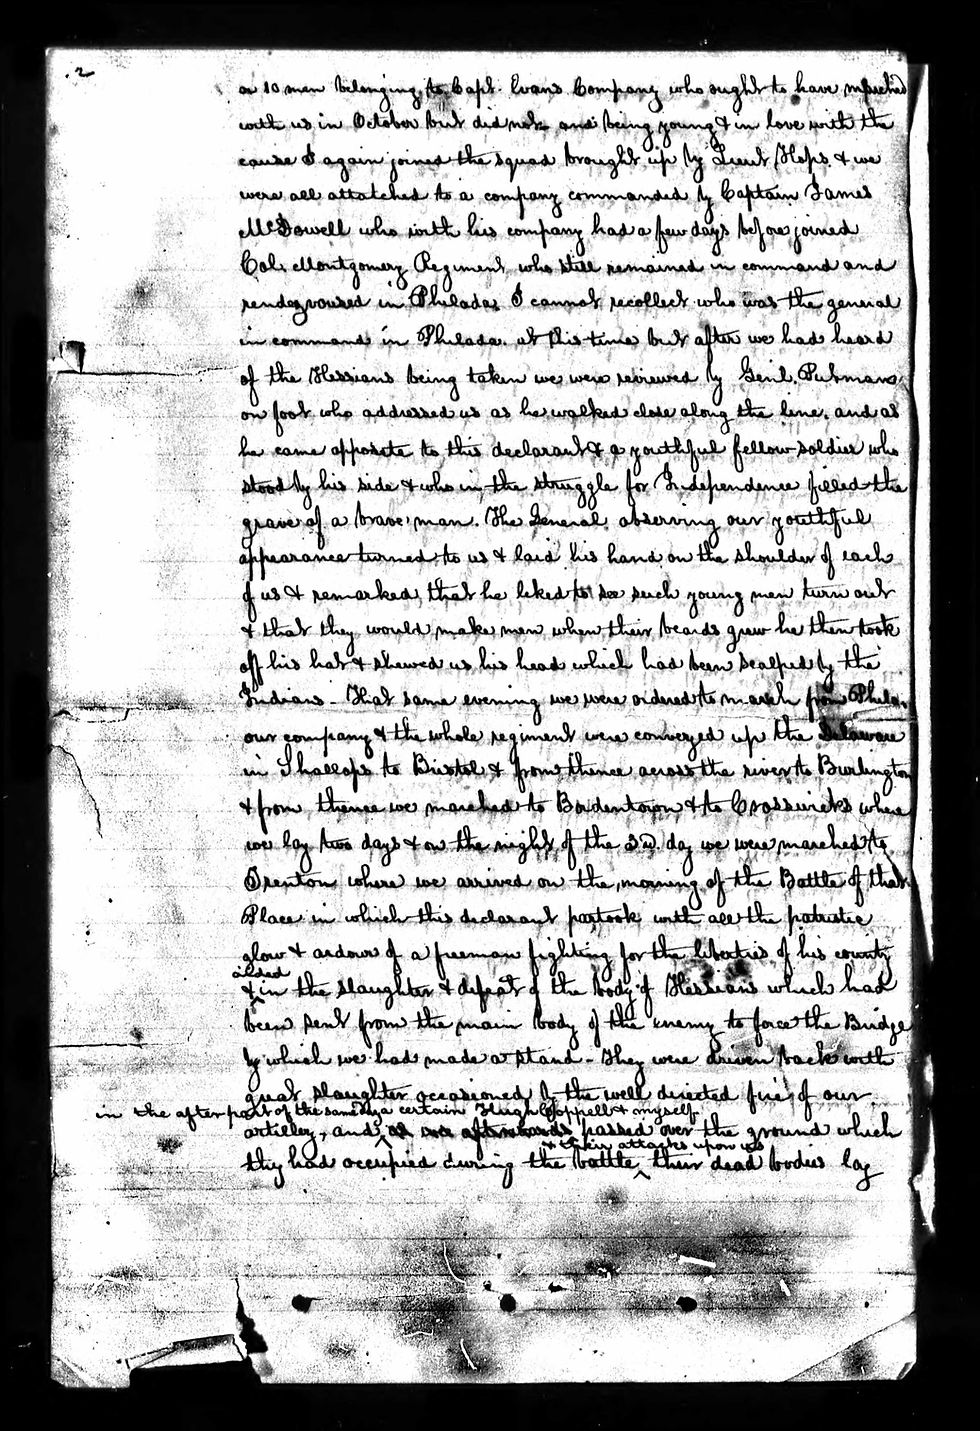 2
or 10 men belonging to Capt. Evans Company who ought to have marched
with us in October but did not and being young & in love with the
cause I again joined the squad brought up by Lieut Heps & we
were all attatched to a company commanded by Captain James
McDowell who with his company had a few days before joined
Col. Montgomery Regiment who still remained in command and
rendezvoused in Philada. I cannot recollect who was the general
in command in Philada. at this time but after we had heard
of the Hessians being taken we were reviewed by Genl. Putnam
on foot who addressed us as he walked close along the line. and as
he came apposite to this declarant & a youthful fellow-soldier who
stood by his side & who in the struggle for Independence filled the
grave of a brave man. The General observing our youthful
appearance turned to us & laid his hand on the shoulder of each
of us & remarked that he liked to see such young men turn out
& that they would make men when their beards grew he then took
off his hat & shewed us his head which had been scalped by the
Indians - That same evening we were ordered to march from Phila.
our company & the whole regiment were conveyed up the Delaware
in Shallops to Bristol & from thence across the river to Burlington
& from thence we marched to Bordentown & to Crosswicks where
we lay two days & on the night of the 2d. day we were marched to
Trenton where we arrived on the morning of the Battle of that
Place in which this declarant partook with all the patriotic
glow & ardour of a freeman fighting for the liberties of his country
aided
& in the slaughter & defeat of the body of Hessians which had
been sent from the main body of the enemy to force the Bridge
by which we had made a stand - They were driven back with
great slaughter occasioned by the well directed fire of our
in the after part of the same day a certain Hugh Coppell & myself
artillery, and as we afterwards passed over the ground which
& their attacks upon us
they had occupied during the battle their dead bodies lay